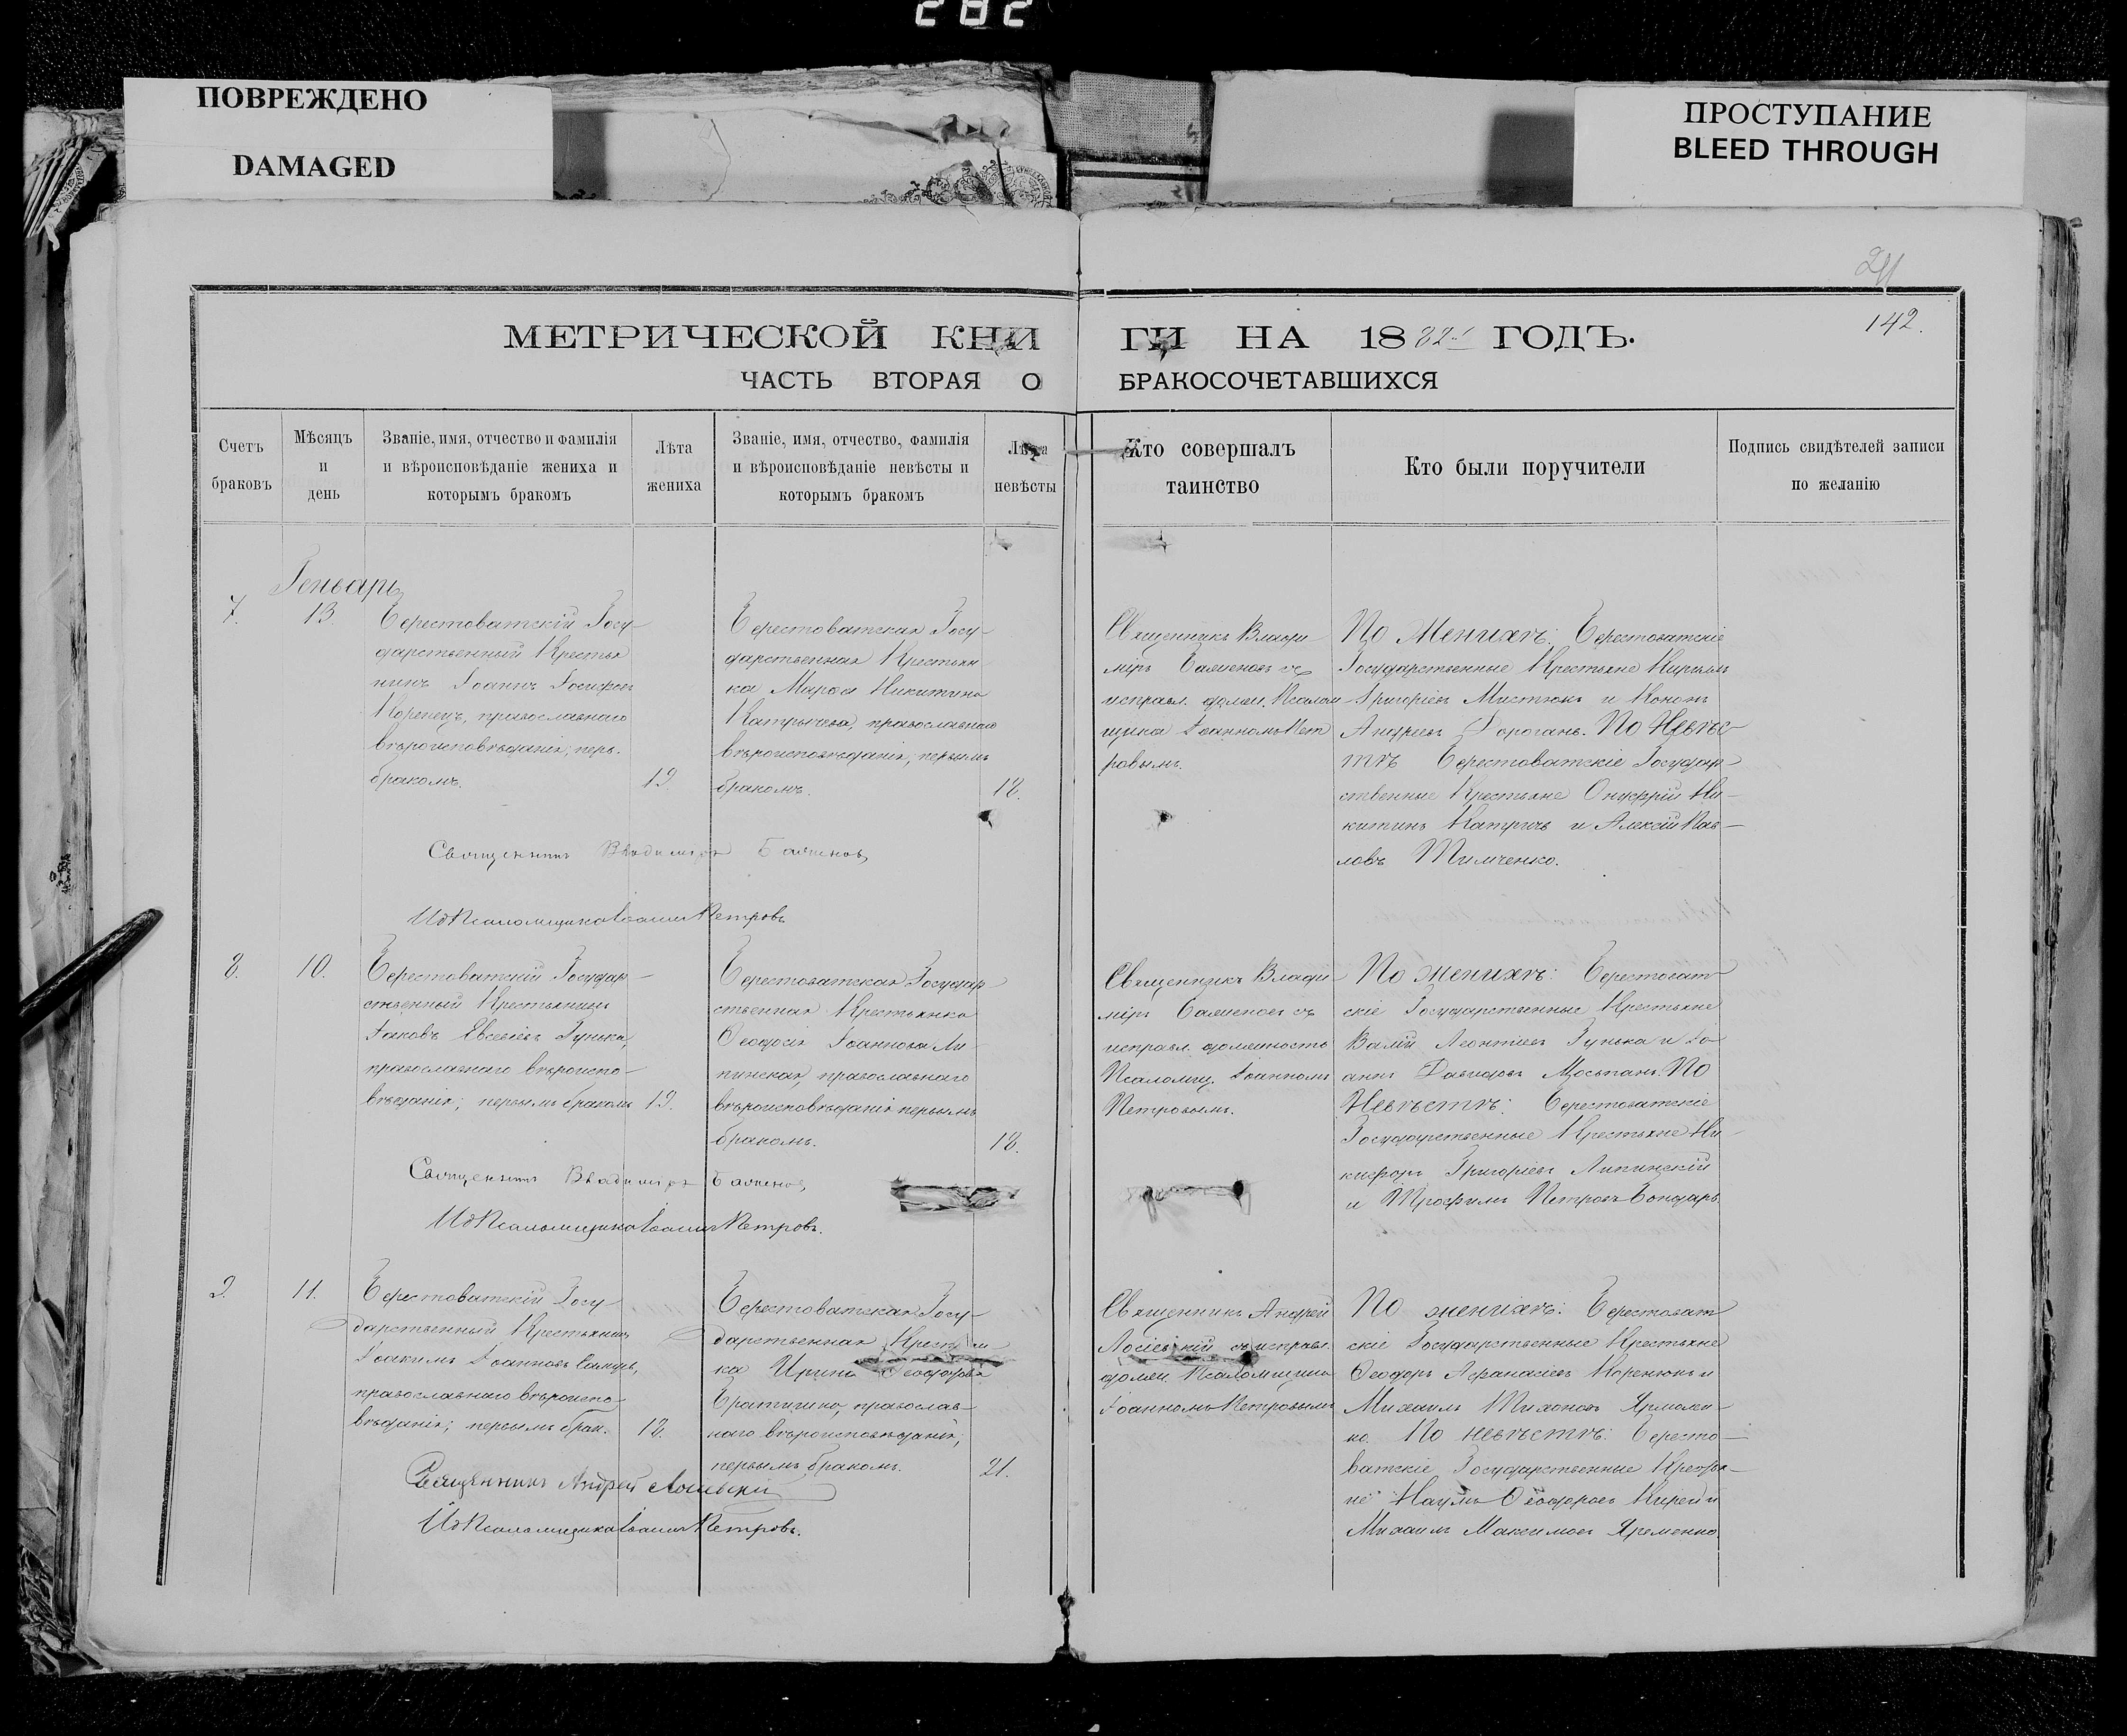 282
ПОВРЕЖДЕНО
DAMAGED
ПРОСТУПАНИЕ
BLEED THROUGH
142.
МЕТРИЧЕСКОЙ КНИ
ГИ НА 1882 ГОДЪ.
ЧАСТЬ ВТОРАЯ О
БРАКОСОЧЕТАВШИХСЯ
Счетъ
браковъ
Мѣсяцъ
и
день
Званіе, имя, отчество и фамилія
и вѣроисповѣданіе жениха и
которымъ бракомъ
Лѣта
жениха
Званіе, имя, отчество, фамилія
и вѣроисповѣданіе невѣсты и
которымъ бракомъ
Лѣта
невѣсты
Кто совершалъ
таинство
Кто были поручители
Подпись свидѣтелей записи
по желанію
Геньварь
7.
13.
Берестоватскій Госу-
дарственный Крестья
нинъ Іоаннъ Іосифов
православнаго
вѣроисповѣданія, перв.
бракомъ.
19
Берестоватская Госу-
дарственная Крестьян
ка Марѳа Никитина
православнаго
вѣроисповѣданія, первымъ
бракомъ.
18.
Священникъ Влади
міръ съ
исправл. должн. Псалом
щика Іоанномъ Пет
ровымъ.
По Женихѣ: Берестоватскіе
Государственные Крестьяне Кириллъ
Григоріевъ и Кононъ
Андреевъ Дорогань. По Невѣс-
тѣ Берестоватскіе Государ-
ственные Крестьяне Онуфрій Ни-
китинъ и Алексій Пав-
ловъ Тимченко.
Священникъ Владиміръ
ИдПсаломщика Іоаннъ Петровъ
8.
10.
Берестоватскій Государ-
ственный Крестьянинъ
Іаковъ Евсевіевъ Гунька,
православнаго вѣроиспо-
вѣданія; первымъ бракомъ
19.
Берестоватская Государ
ственная Крестьянка
Ѳеодосія Іоаннова Ли
пинская, православнаго
вѣроисповѣданія первымъ
бракомъ.
18.
Священникъ Влади
міръ съ
исправл. должность
Псаломщ. Іоанномъ
Петровымъ.
По женихѣ: Берестоват
скіе Государственные Крестьяне
Леонтіевъ Гунька и Іо-
аннъ Давидовъ Мосьпанъ. По
Невѣстѣ: Берестоватскіе
Государственные Крестьяне Ни-
кифоръ Григоріевъ Липинскій
и Трофимъ Петровъ Бондарь
Священникъ Владиміръ
ИдПсаломщика Іоаннъ Петровъ.
9.
11.
Берестоватскій Госу-
дарственный Крестьянинъ
Іоакимъ Іоанновъ
православнаго вѣроиспо-
вѣданія; первымъ брак.
18.
Берестоватская Госу-
дарственная Крестьян
ка Ирина Ѳеодорова
православ-
наго вѣроисповѣданія;
первымъ бракомъ.
21.
Священникъ Андрей
Лосіевскій съ исправл.
должн. Псаломщика
Іоанномъ Петровымъ
По женихѣ: Берестоват
скіе Государственные Крестьяне
Ѳеодоръ Аѳанасіевъ и
Михаилъ Тихоновъ Ярмолен-
ко. По невѣстѣ: Бересто-
ватскіе Государственные Крестья-
не Наумъ Ѳеодоровъ и
Михаилъ Максимовъ Яременко.
Священникъ Андрей Лосіевскій
ИдПсаломщика Іоаннъ Петровъ.